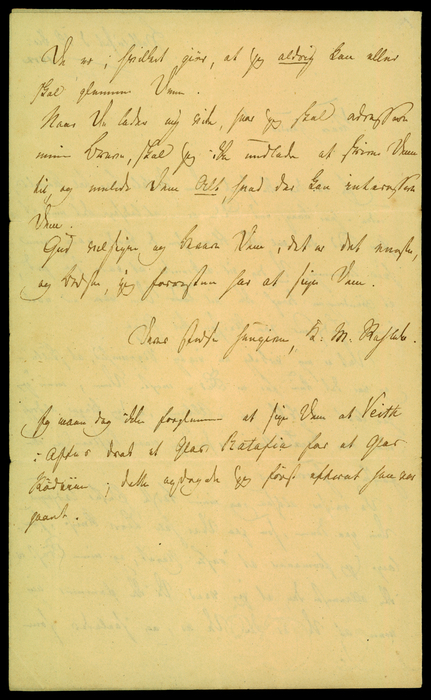 De er, hvilket gjør, at jeg aldrig kan eller
skal glemme Dem.
Naar De lader mig vide, hvor jeg skal adressere
mine Breve, skal jeg ikke undlade at skrive Dem
til og melde Dem Alt, hvad der kan interessere
Dem.
Gud velsigne og bevare Dem, det er det eneste,
og bedste, jeg foresten har at sige Dem.
Deres stedse hengivne, K. M.
Jeg maa dog ikke forglemme at sige Dem at Veith
i Aftes drak et Glas Ratafia for et Glas
Rødviin; dette opdagede jeg først efterat han var
gaaet.